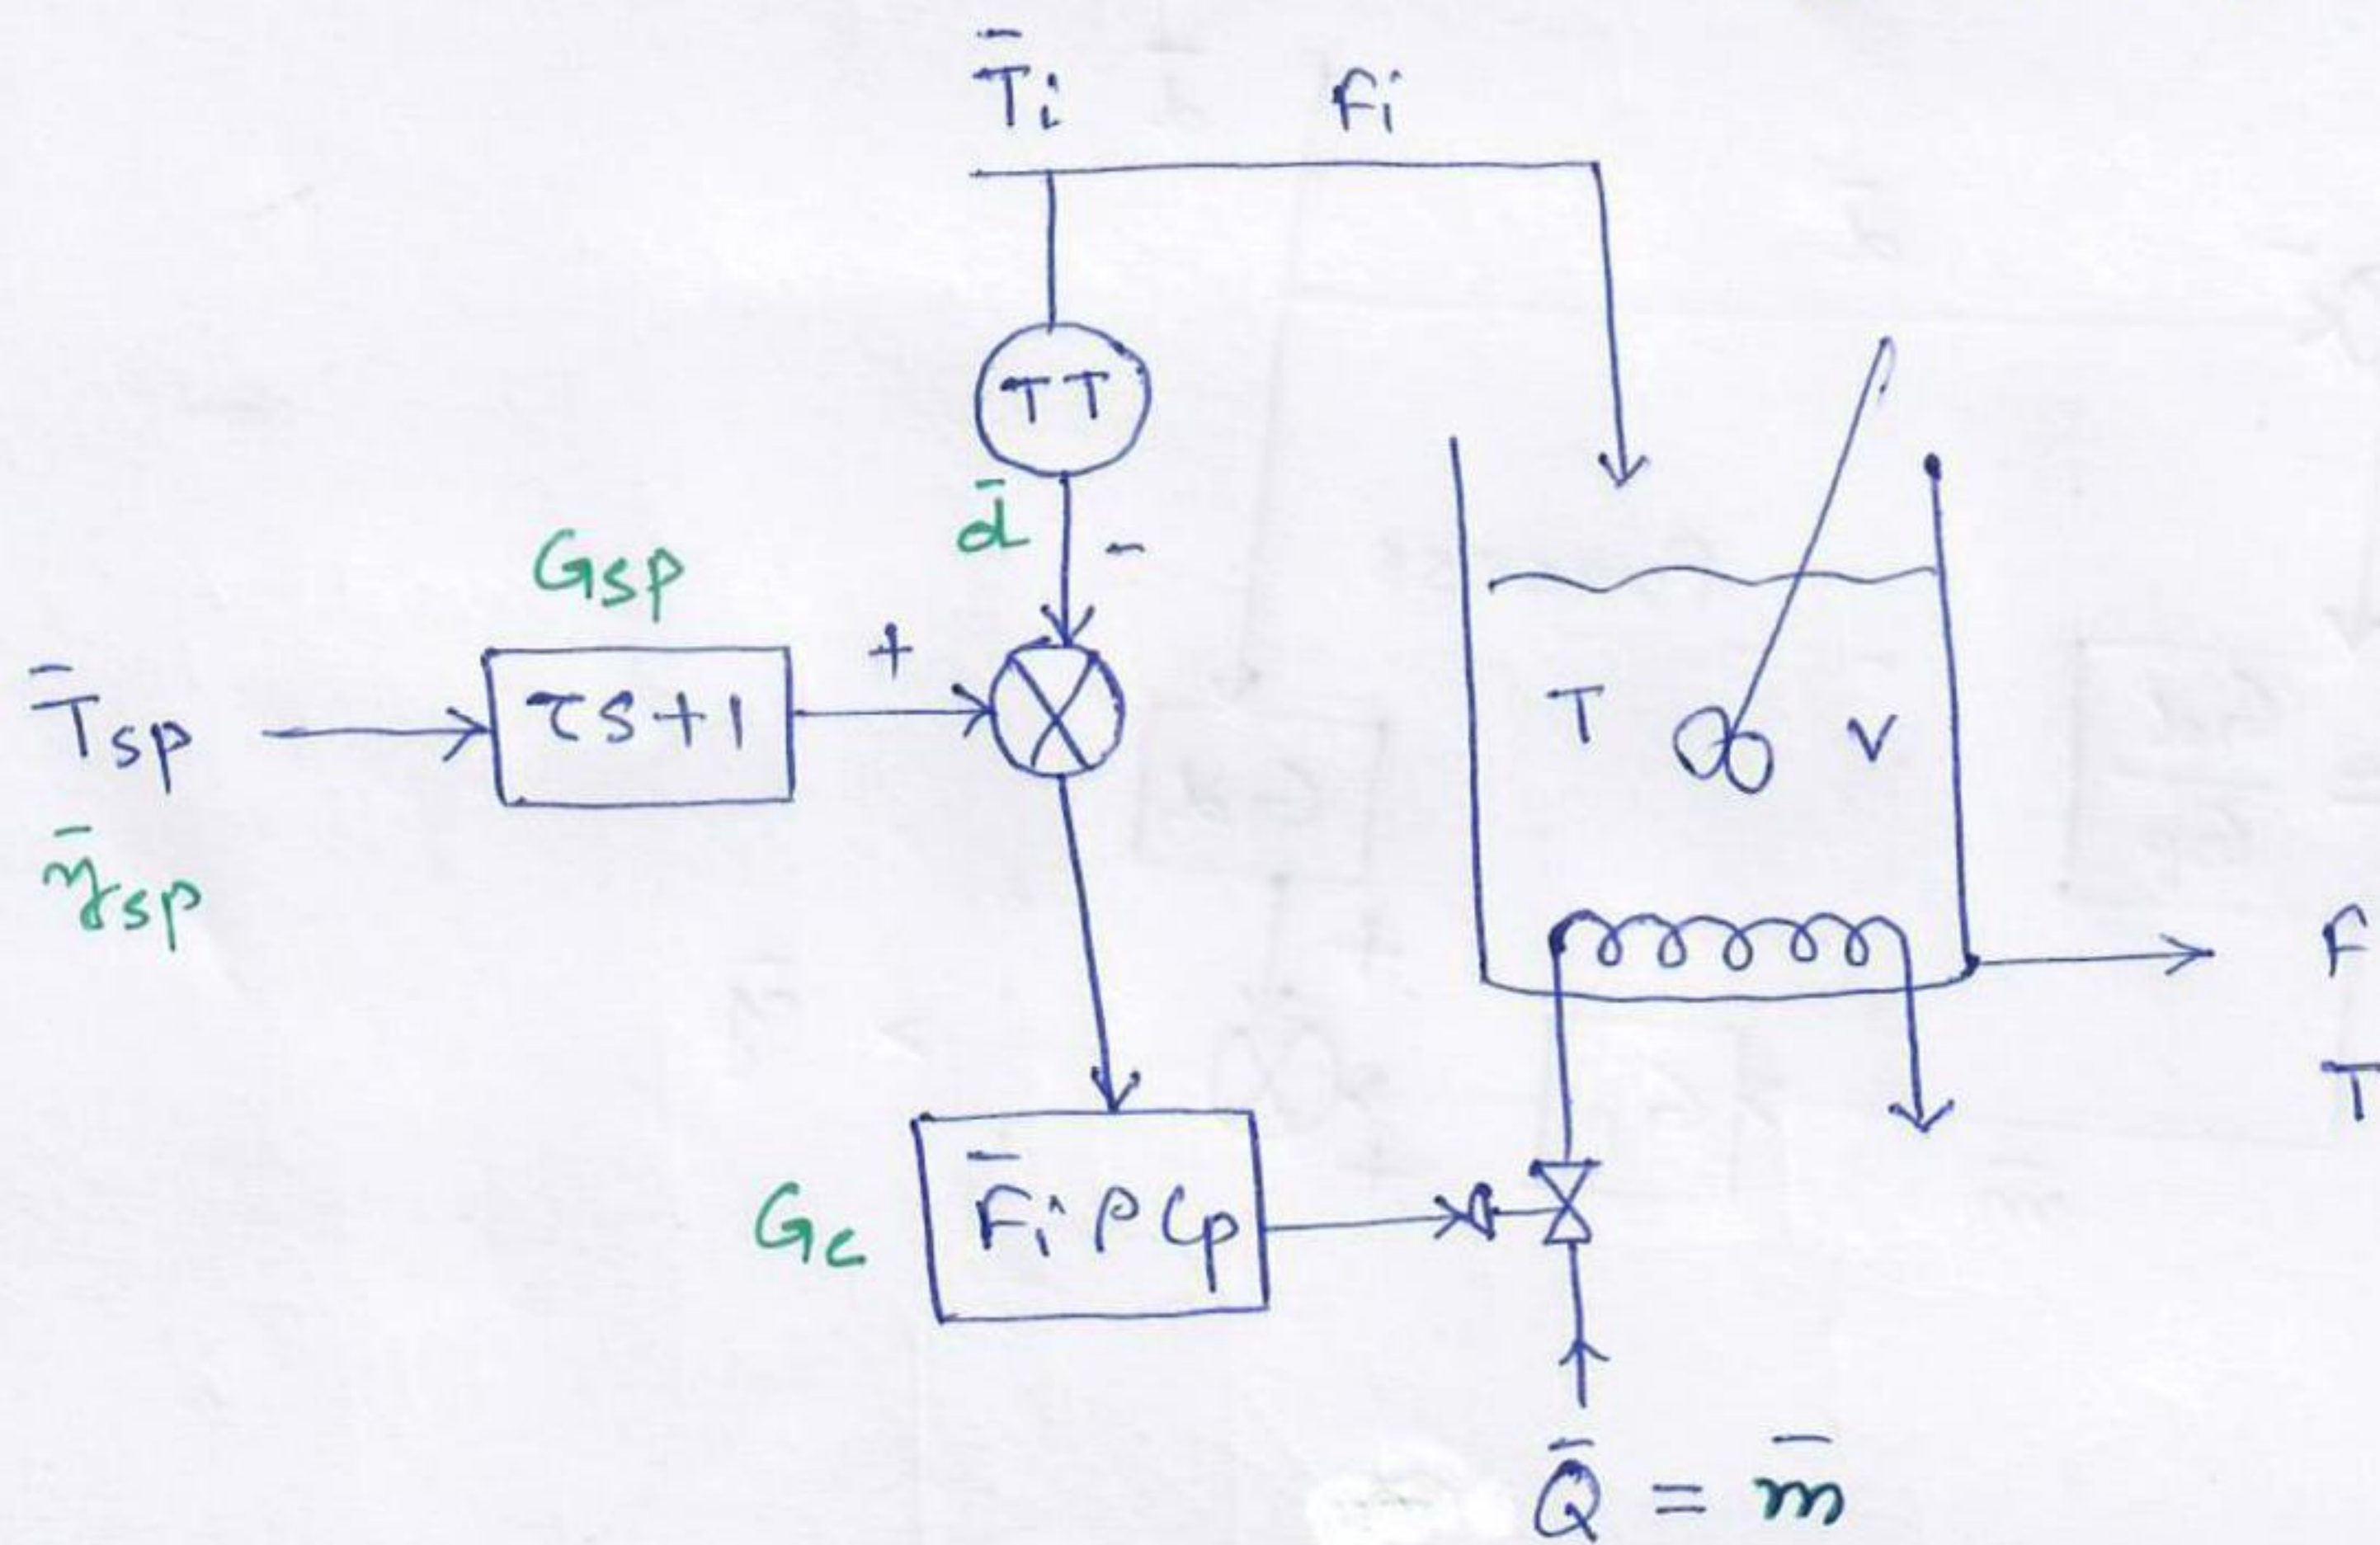 T̄i Fi
TT
d̄ -
Gsp
+
T̄sp
τs+1
ȳsp
T V
F
T
Gc
F̄i ρ Cp
Q̄ = m̄